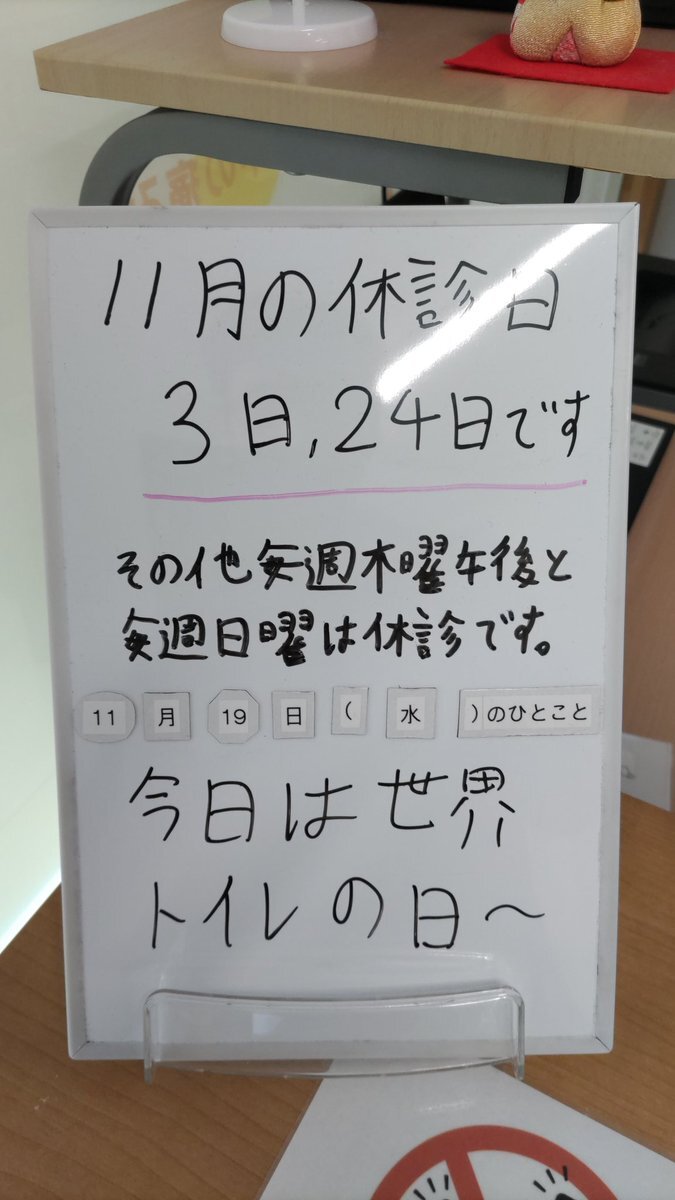 11月の休診日
3日,24日です
その他毎週木曜午後と
毎週日曜は休診です。
11月19日(水)のひとこと
今日は世界
トイレの日～